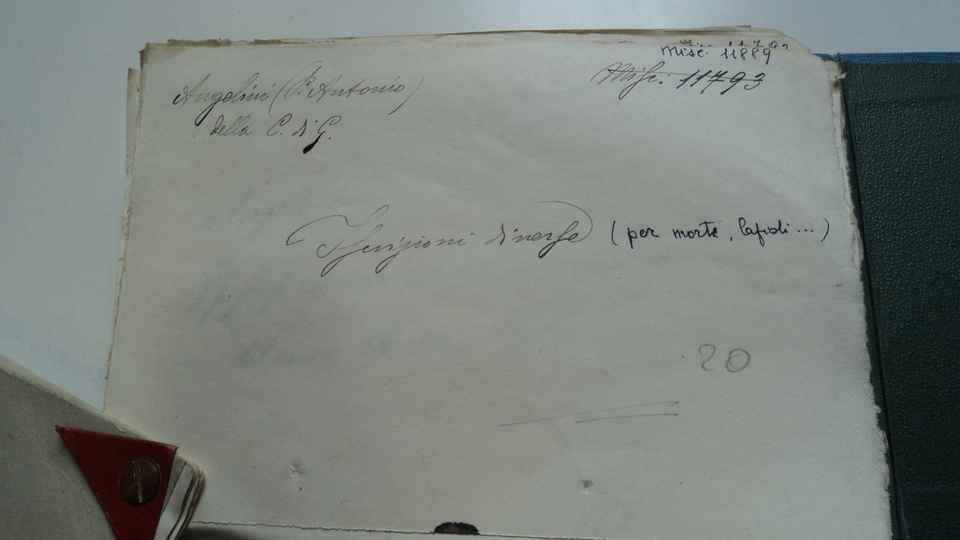 Misc. 11889
Misc. 11793
Angelini (P. Antonio)
della C. di G.
Iscrizioni diverse (per morte, lapidi...)
20